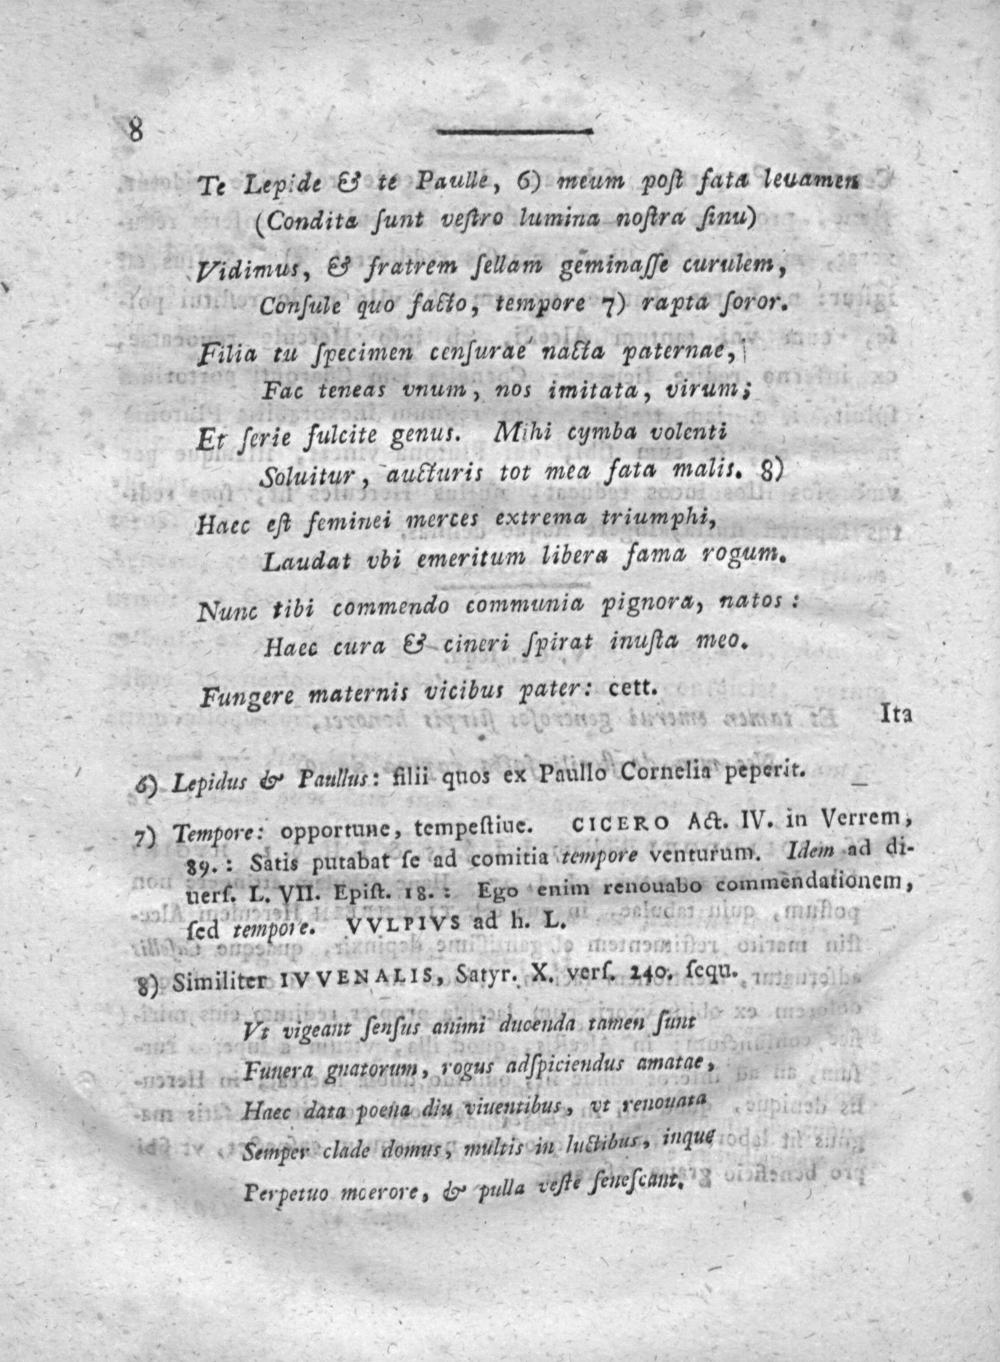 8
Te Lepide & te Paulle, 6) meum poſt fata leuamen
(Condita ſunt veſtro lumina noſtra ſinu)
Vidimus, & fratrem ſellam geminaſſe curulem,
Conſule quo facto, tempore 7) rapta ſoror.
Filia tu ſpecimen cenſurae nacta paternae,
Fac teneas vnum, nos imitata, virum;
Et ſerie fulcite genus. Mihi cymba volenti
Soluitur, aucturis tot mea fata malis. 8)
Haec eſt feminei merces extrema triumphi,
Laudat vbi emeritum libera fama rogum.
Nunc tibi commendo communia pignora, natos:
Haec cura & cineri ſpirat inuſta meo.
Fungere maternis vicibus pater: cett.
Ita
6) Lepidus & Paullus: filii quos ex Paullo Cornelia peperit.
7) Tempore: opportune, tempeſtiue. CICERO Act. IV. in Verrem,
89.: Satis putabat ſe ad comitia tempore venturum. Idem ad di-
uerſ. L. VII. Epiſt. 18.: Ego enim renouabo commendationem,
ſed tempore. VVLPIVS ad h. L.
8) Similiter IVVENALIS, Satyr. X. verſ. 240. ſequ.
Vt vigeant ſenſus animi ducenda tamen ſunt
Funera gnatorum, rogus adſpiciendus amatae,
Haec data poena diu viuentibus, vt renouata
Semper clade domus, multis in luctibus, inque
Perpetuo moerore, & pulla veſte ſeneſcant.